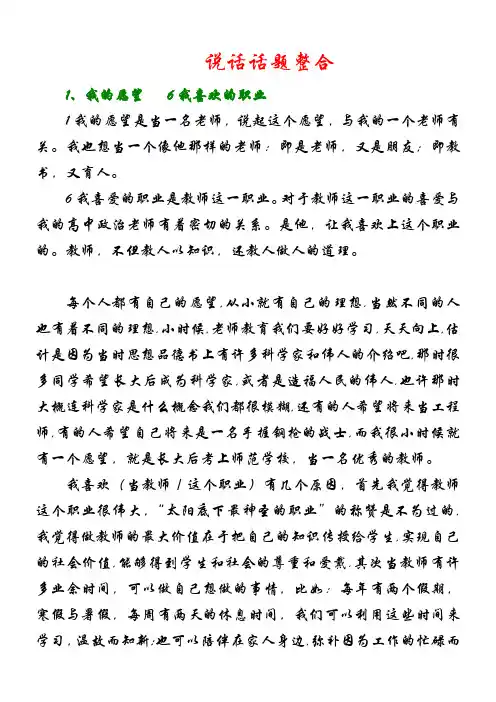 说话话题整合
1、我的愿望 6我喜欢的职业
1我的愿望是当一名老师，说起这个愿望，与我的一个老师有
关。我也想当一个像他那样的老师：即是老师，又是朋友；即教
书，又育人。
6我喜爱的职业是教师这一职业。对于教师这一职业的喜爱与
我的高中政治老师有着密切的关系。是他，让我喜欢上这个职业
的。教师，不但教人以知识，还教人做人的道理。
每个人都有自己的愿望,从小就有自己的理想.当然不同的人
也有着不同的理想.小时候,老师教育我们要好好学习,天天向上,估
计是因为当时思想品德书上有许多科学家和伟人的介绍吧,那时很
多同学希望长大后成为科学家,或者是造福人民的伟人.也许那时
大概连科学家是什么概念我们都很模糊,还有的人希望将来当工程
师,有的人希望自己将来是一名手握钢枪的战士,而我很小时候就
有一个愿望，就是长大后考上师范学校，当一名优秀的教师。
我喜欢（当教师／这个职业）有几个原因，首先我觉得教师
这个职业很伟大，“太阳底下最神圣的职业”的称赞是不为过的.
我觉得做教师的最大价值在于把自己的知识传授给学生,实现自己
的社会价值,能够得到学生和社会的尊重和爱戴.其次当教师有许
多业余时间，可以做自己想做的事情，比如：每年有两个假期，
寒假与暑假，每周有两天的休息时间，我们可以利用这些时间来
学习,温故而知新;也可以陪伴在家人身边,弥补因为工作的忙碌而